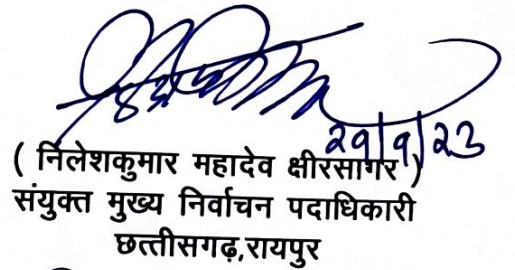 29/9/23
( निलेशकुमार महादेव क्षीरसागर )
संयुक्त मुख्य निर्वाचन पदाधिकारी
छत्तीसगढ़,रायपुर